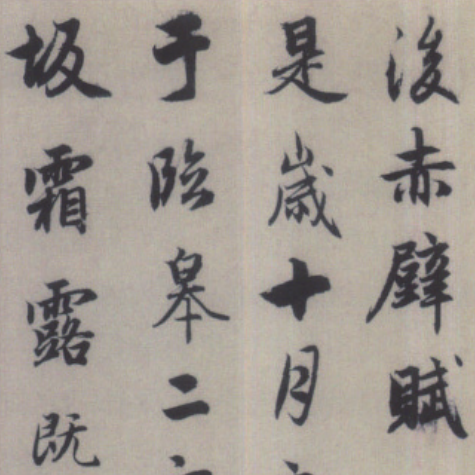 後赤壁賦
是歲十月
于臨皋二
坂霜露既